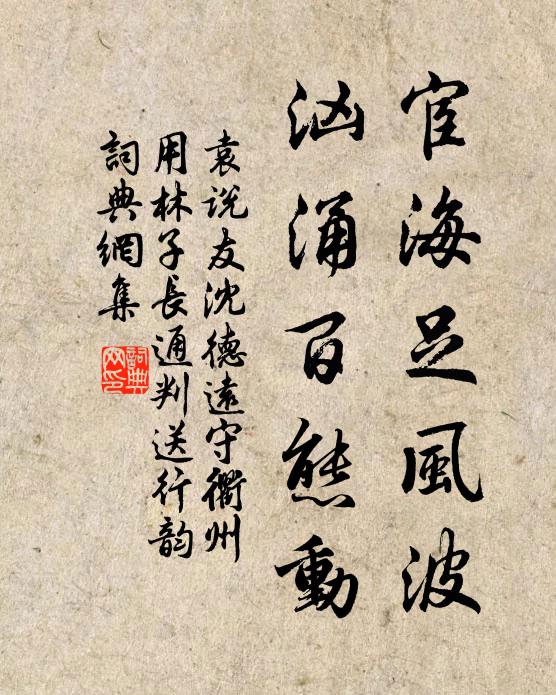 宦海足風波
洶涌百態動
袁说友沈德遠守衢州
用林子長通判送行韵
詞典網集
詞典網印